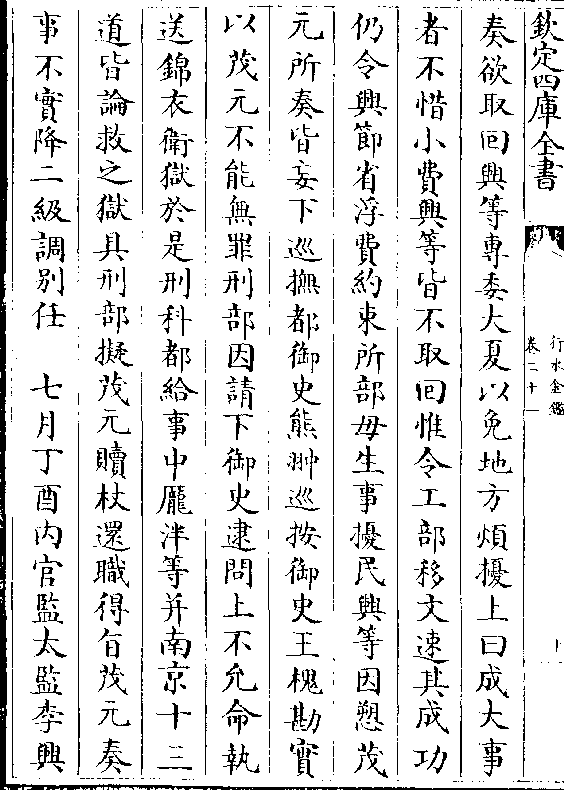 欽定四庫全書
行水金鑑
卷二十一
奏欲取回興等專委大夏以免地方煩擾上曰成大事
者不惜小費興等皆不取回惟令工部移文速其成功
仍令興節省浮費約束所部毋生事擾民興等因愬茂
元所奏皆妄下巡撫都御史熊翀巡按御史王槐勘實
以茂元不能無罪刑部因請下御史逮問上不允命執
送錦衣衛獄於是刑科都給事中龐泮等并南京十三
道皆論救之獄具刑部擬茂元贖杖還職得旨茂元奏
事不實降二級調別任　七月丁酉內官監太監李興